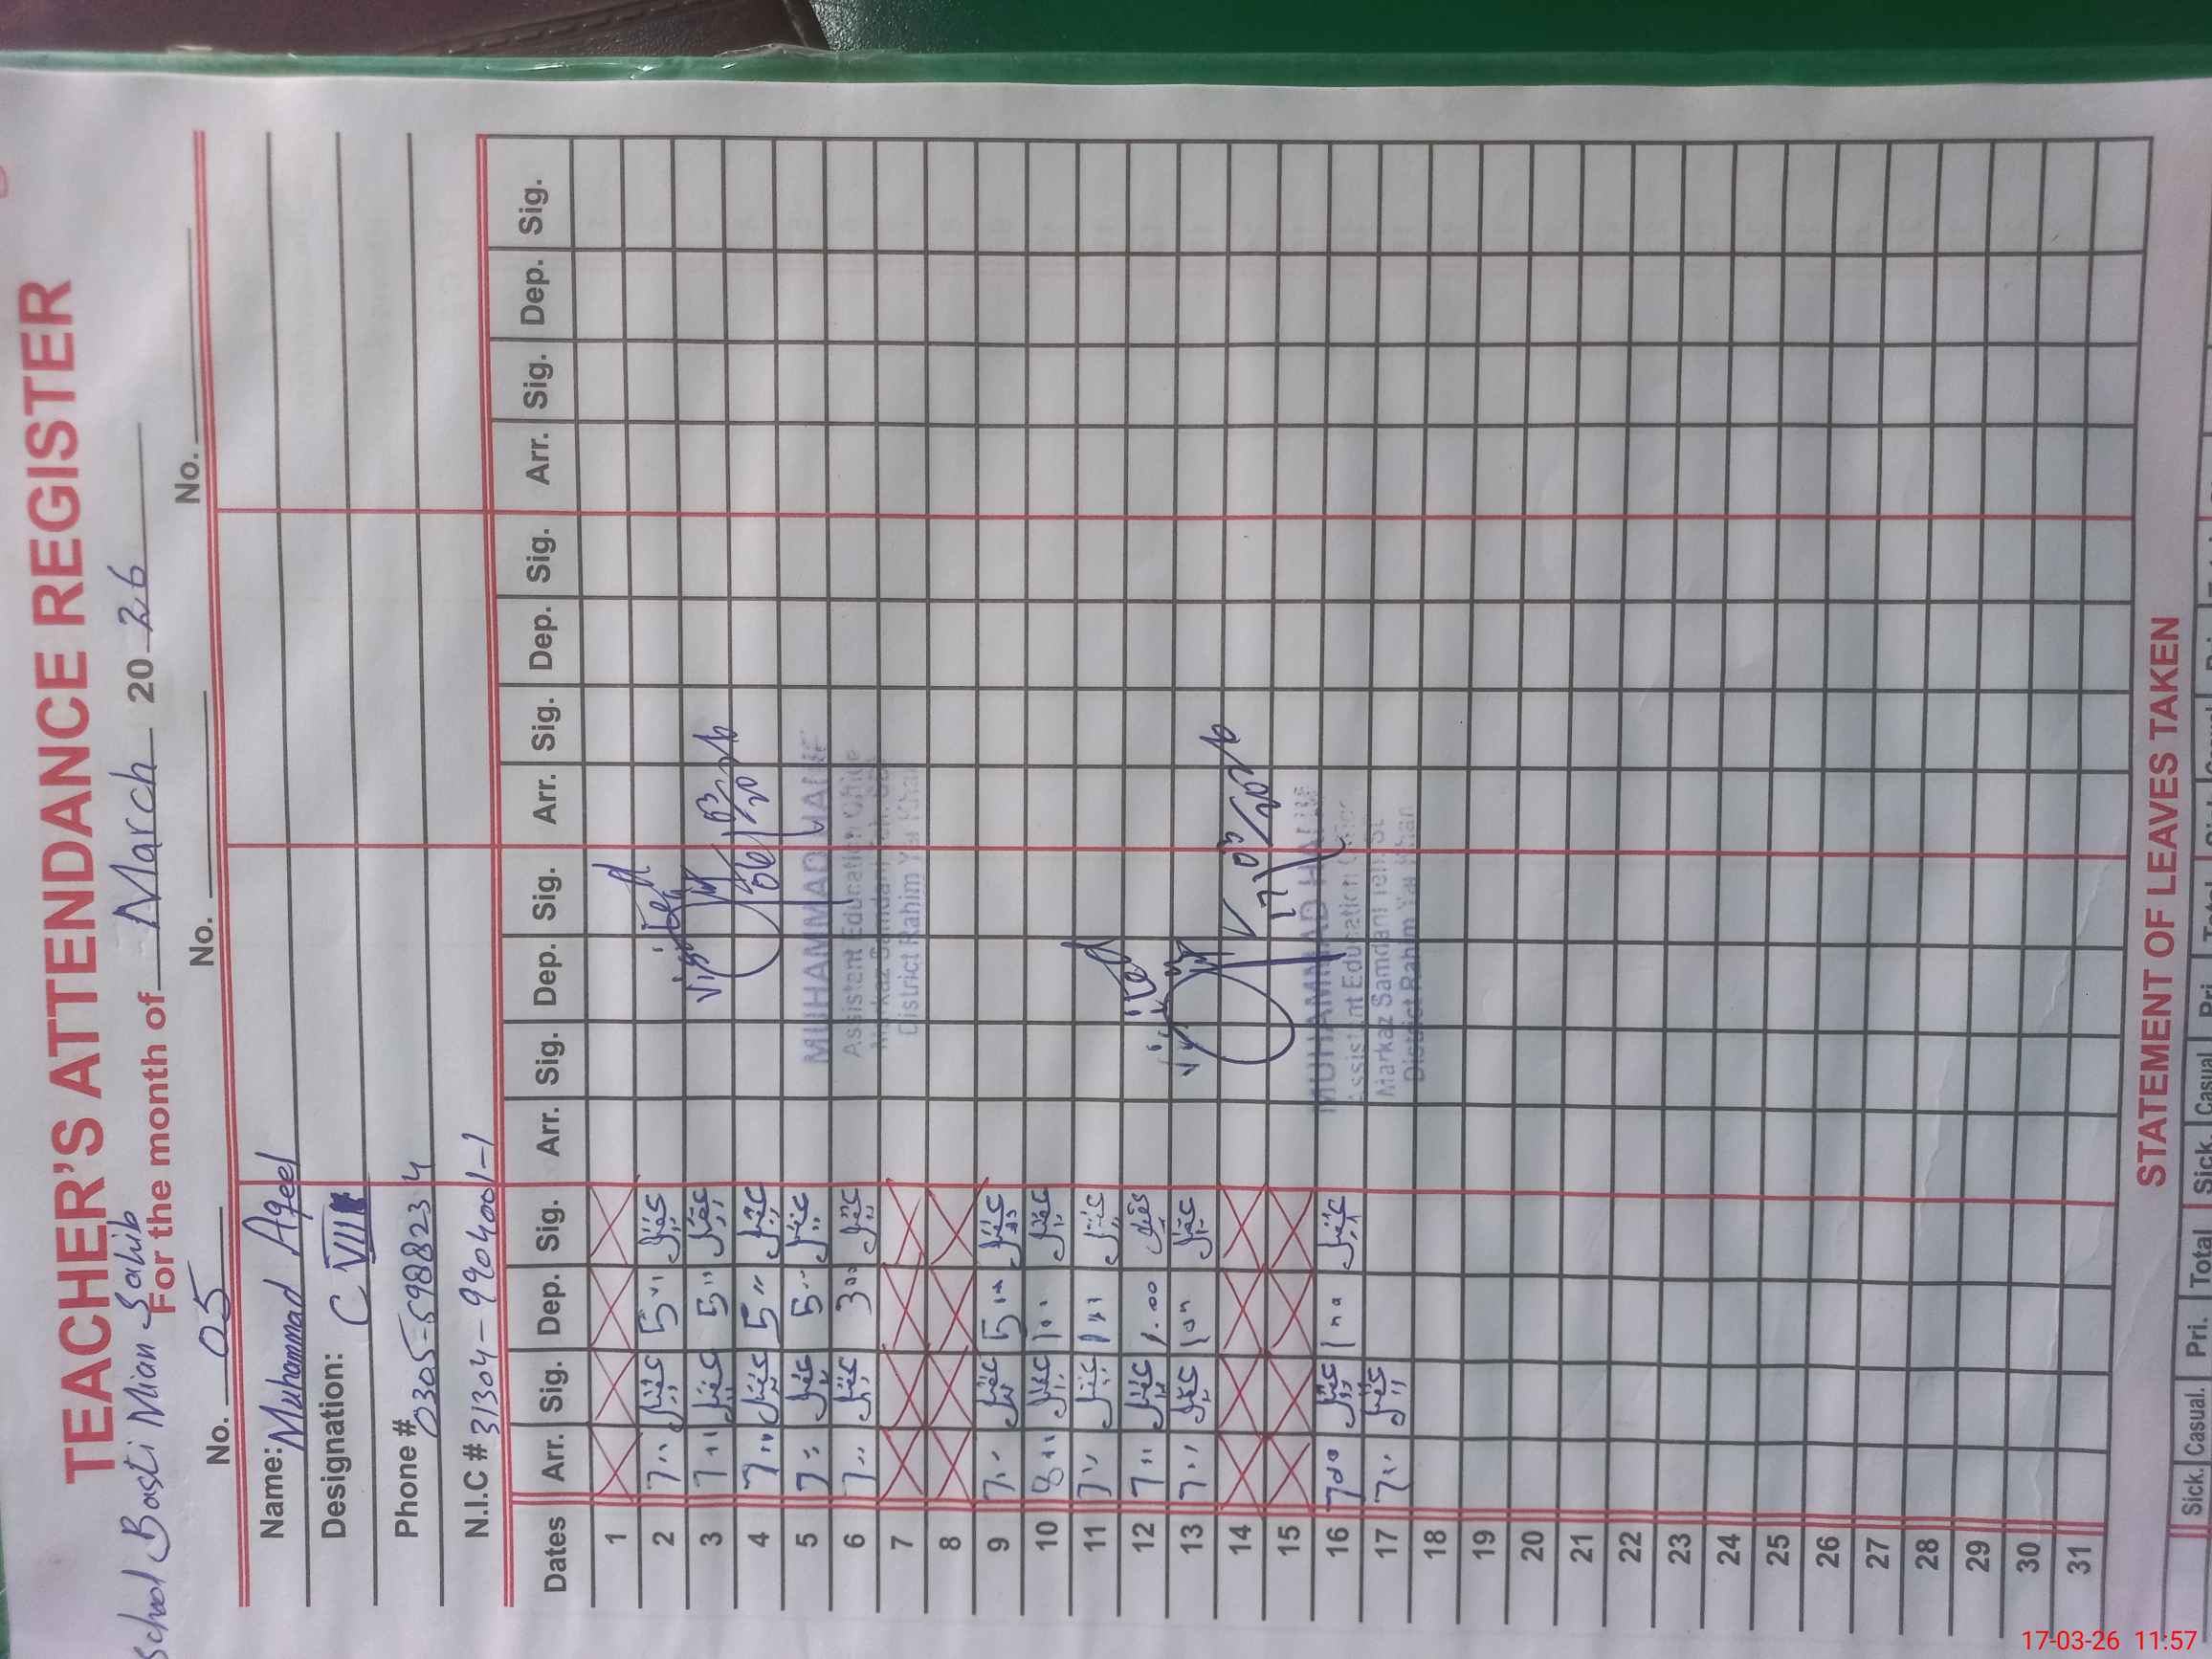 TEACHER'S ATTENDANCE REGISTER
School Basti Mian Sahib
For the month of March 2026
No. 05 No. No.
Name: Muhammad Aqeel
Designation: C VIII
Phone # 0305-5988234
N.I.C # 31304-9904001-1
Dates Arr. Sig. Dep. Sig. Arr. Sig. Dep. Sig. Arr. Sig. Dep. Sig. Arr. Sig. Dep. Sig.
1
2 7 عقیل 5 عقیل
3 7 عقیل 5 عقیل
4 7 عقیل 5 عقیل
5 7 عقیل 5 عقیل
6 7 عقیل 3 عقیل
7
8
9 7 عقیل 5 عقیل
10 8 عقیل 1 عقیل
11 7 عقیل 1 عقیل
12 7 عقیل 1.00 عقیل
13 7 عقیل 1 عقیل
14
15
16 7 عقیل 1 عقیل
17 7 عقیل
18
19
20
21
22
23
24
25
26
27
28
29
30
31
Visited
06/03/2026
MUHAMMAD HANIF
Assistant Education Office
Markaz Samdani Teh. SDK
District Rahim Yar Khan
Visited
17/03/2026
MUHAMMAD HANIF
Assistant Education Office
Markaz Samdani Teh. SDK
District Rahim Yar Khan
STATEMENT OF LEAVES TAKEN
Sick. Casual. Pri. Total Sick. Casual Pri. Total
17-03-26 11:57